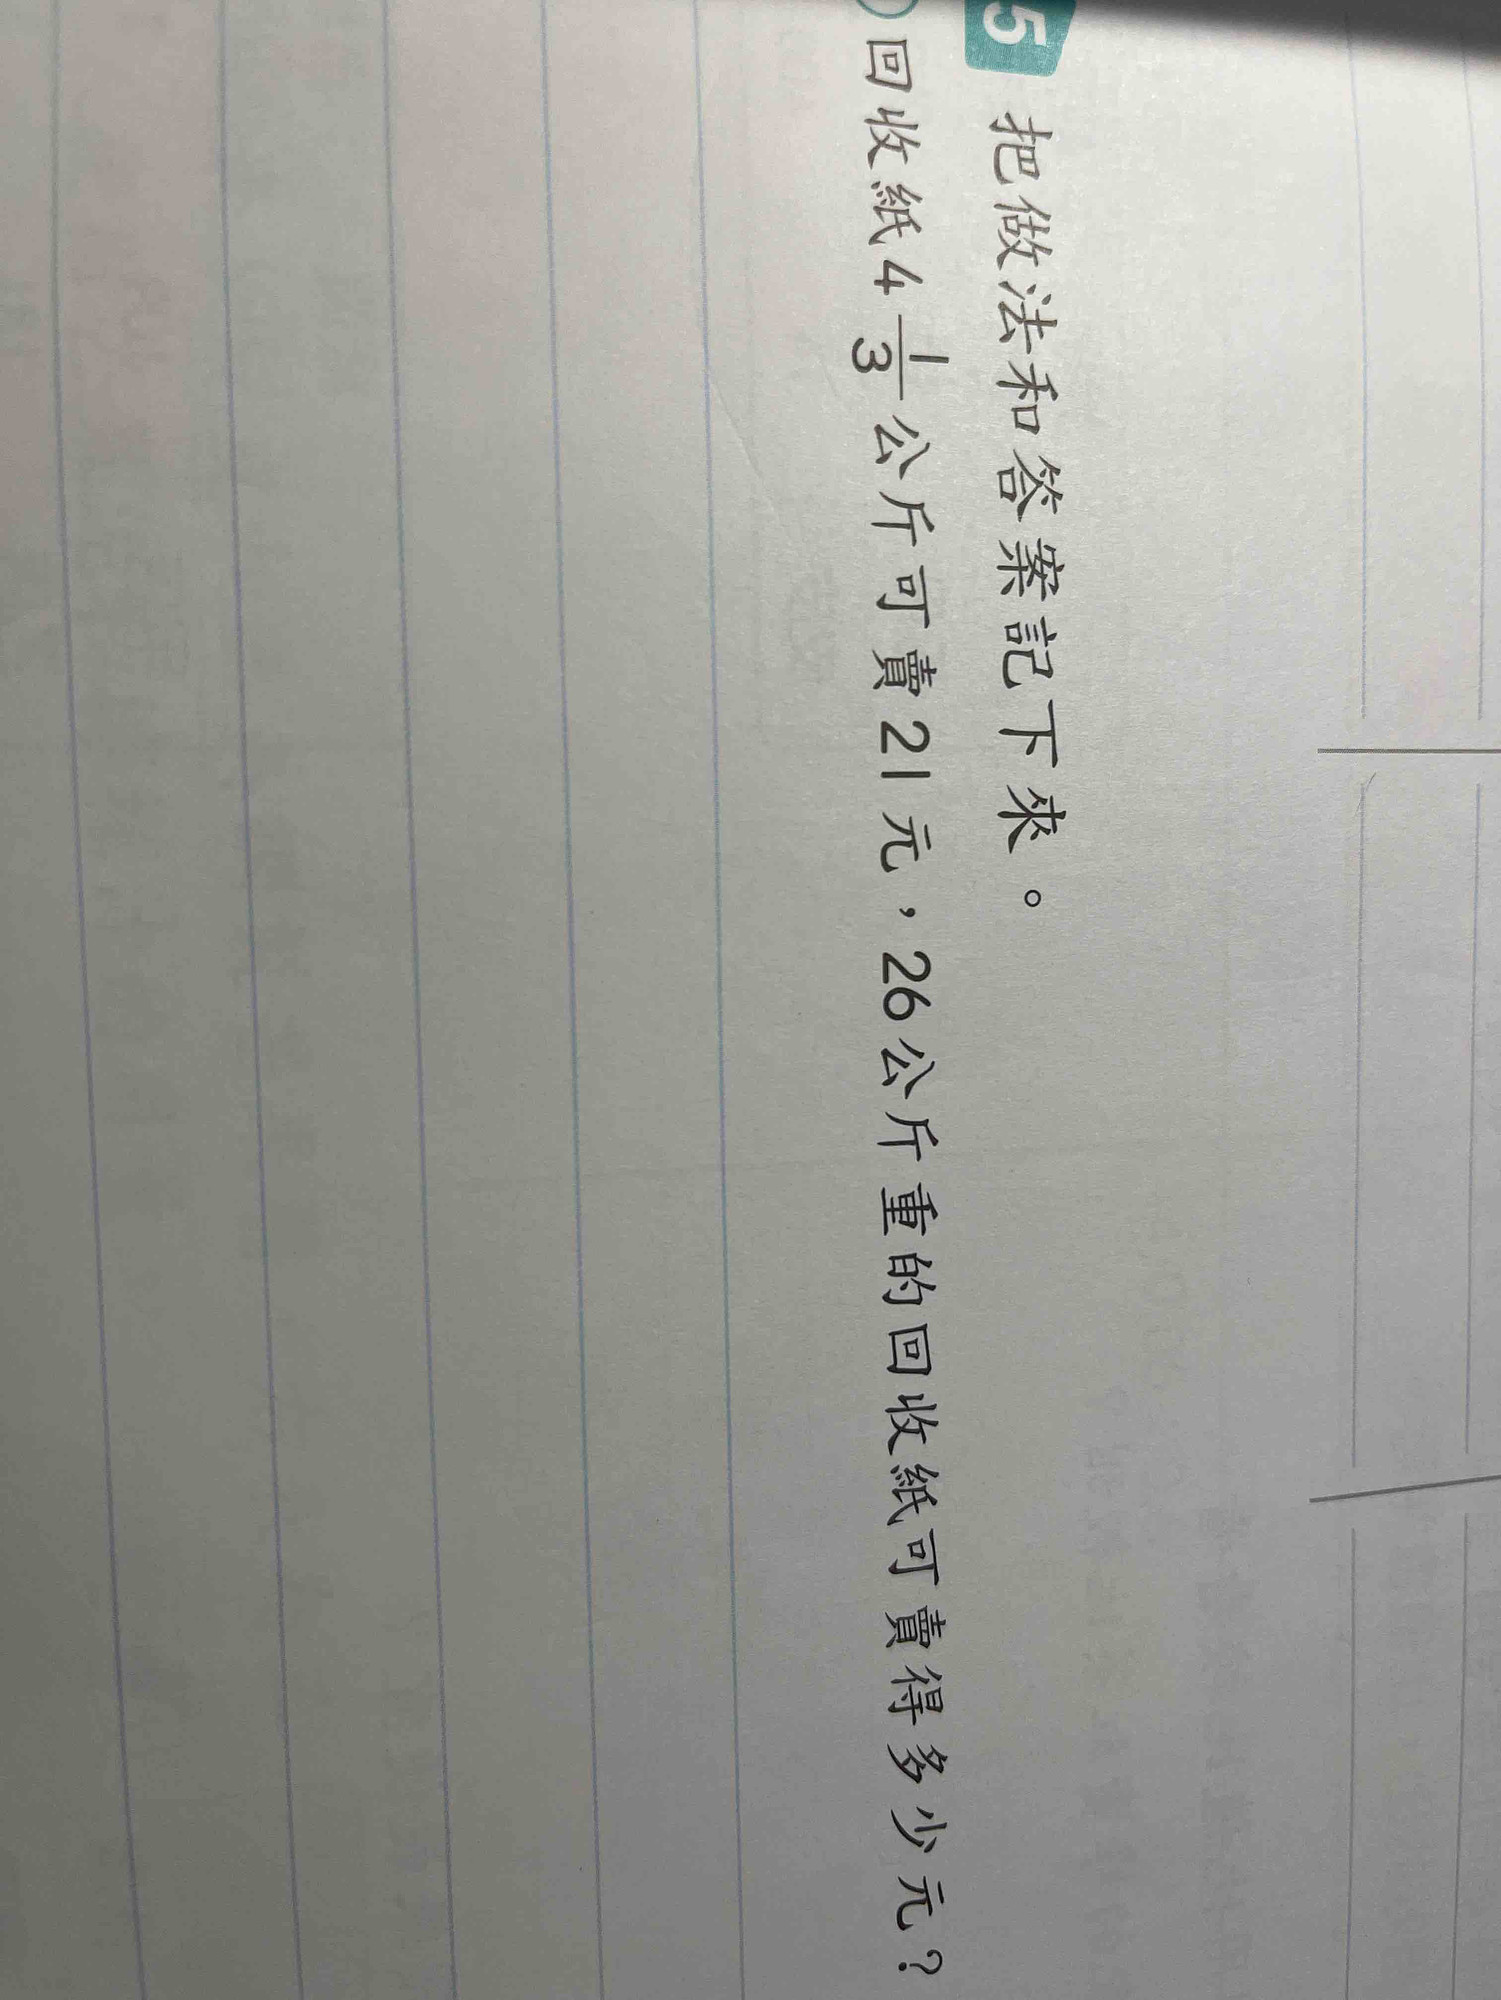 5 把做法和答案記下來。
回收紙4 1/3 公斤可賣21元，26公斤重的回收紙可賣得多少元？